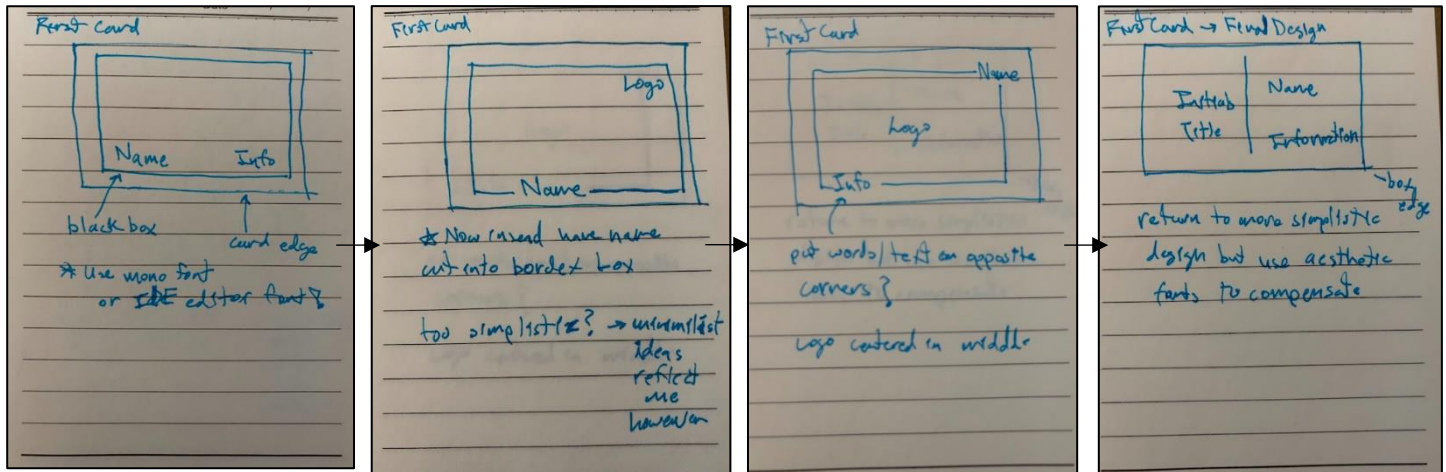 First Card
Name Info
black box
card edge
* Use mono font
or IDE editor font?
First Card
Logo
Name
* Now insend have name
cut into border box
too simplistic? → minimilist
ideas
reflect
me
however
First Card
Name
Logo
Info
put words/text on opposite
corners?
Logo centered in middle
First Card → Final Design
Initials
Title
Name
Information
box
edge
return to more simplistic
design but use aesthetic
fonts to compensate